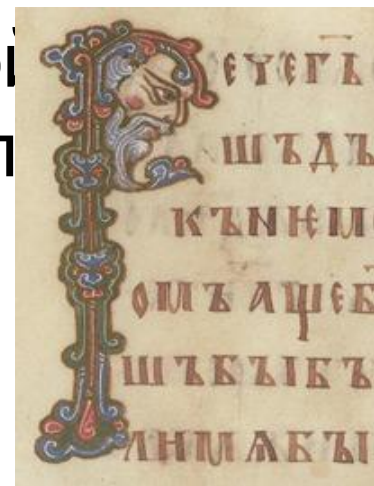 РЕЧЕГЬ
ШЪДЪ
КЪNѤМ
ОМЪАЩЕБ
ШЪБЪІБЪ
ЛИМѦБЪІ